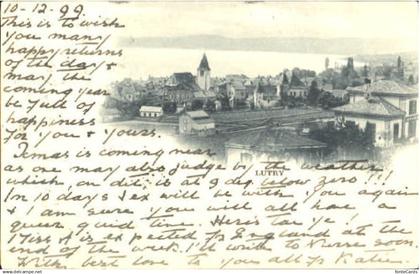 10-12.99
This is to wish
you many
happy returns
of the day &
may the
coming year
be full of
happiness
for you &
yours.
Xmas is coming near
as one may also judge by the weather
which, on dit, is at 9 deg. below zero!!!
LUTRY
In 10 days I will be with you again
& I am sure you will all have a
good time. Here's to ye!
Miss is expected fr England at the
end of the week. I'll write to soon
With best love to you all yrs Katie.